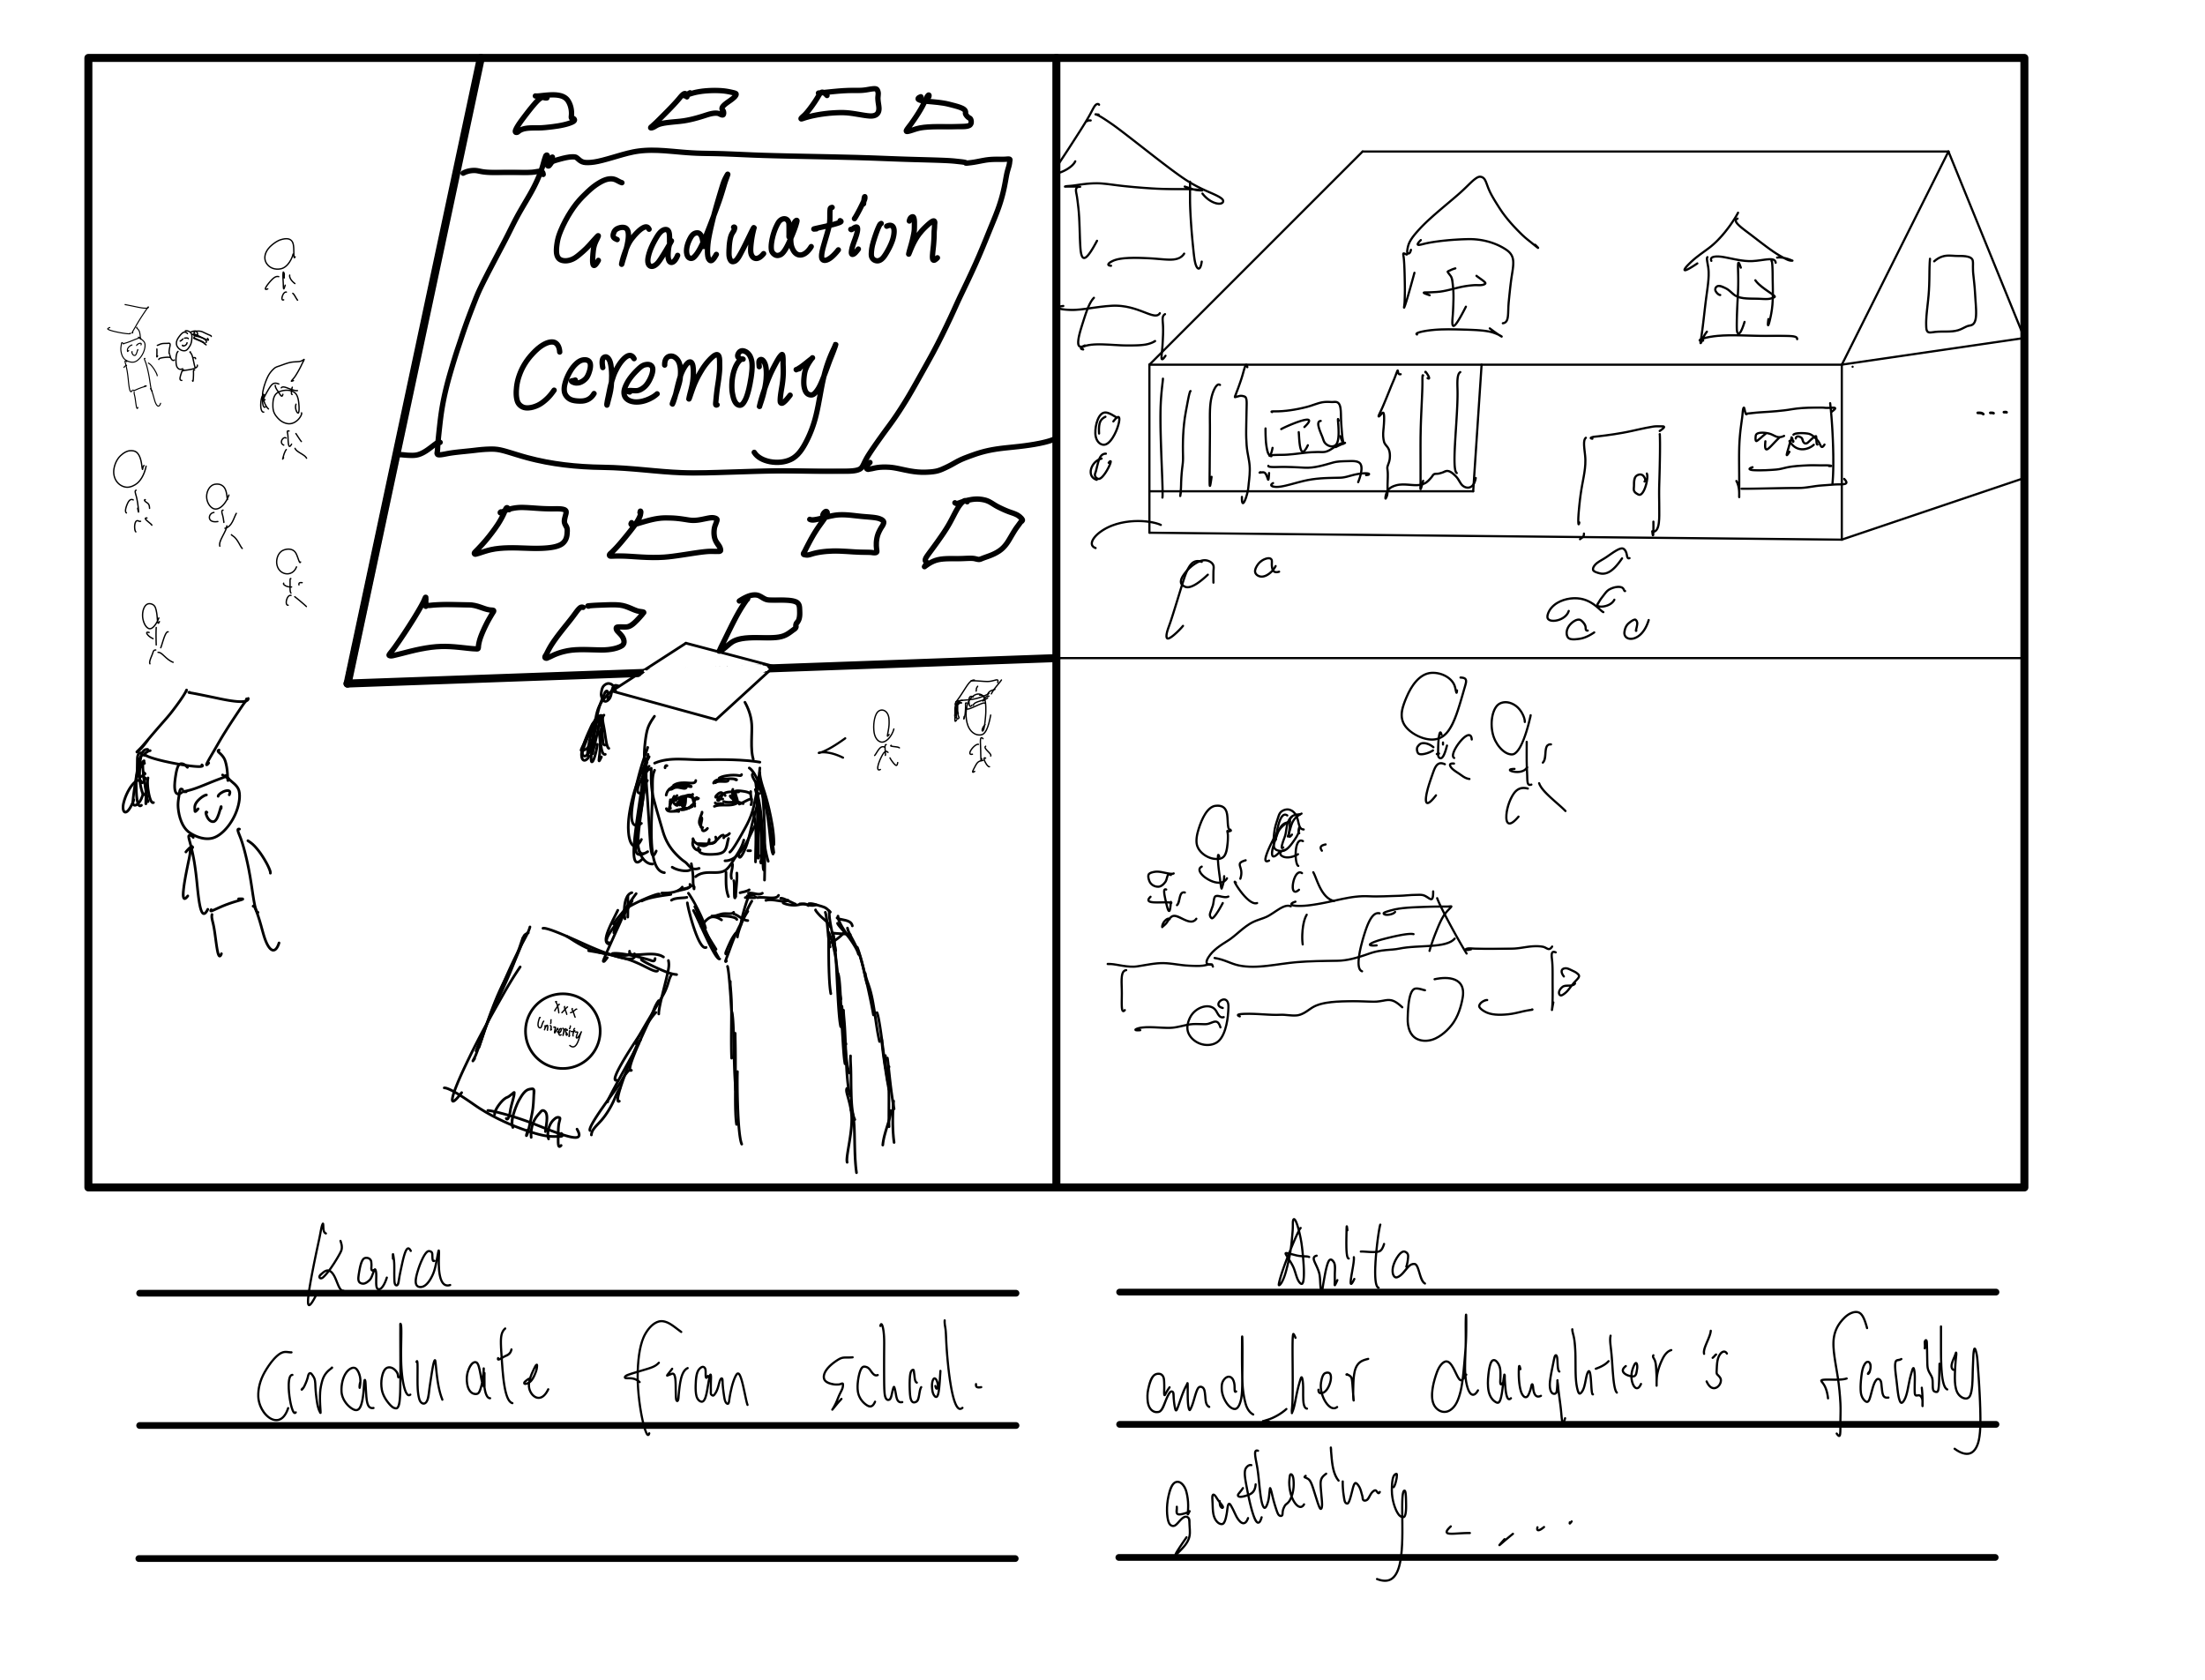 Graduation
Ceremony
xxx
University
Kara
Graduate from school.
Anita
and her daughter's family
gathering ....